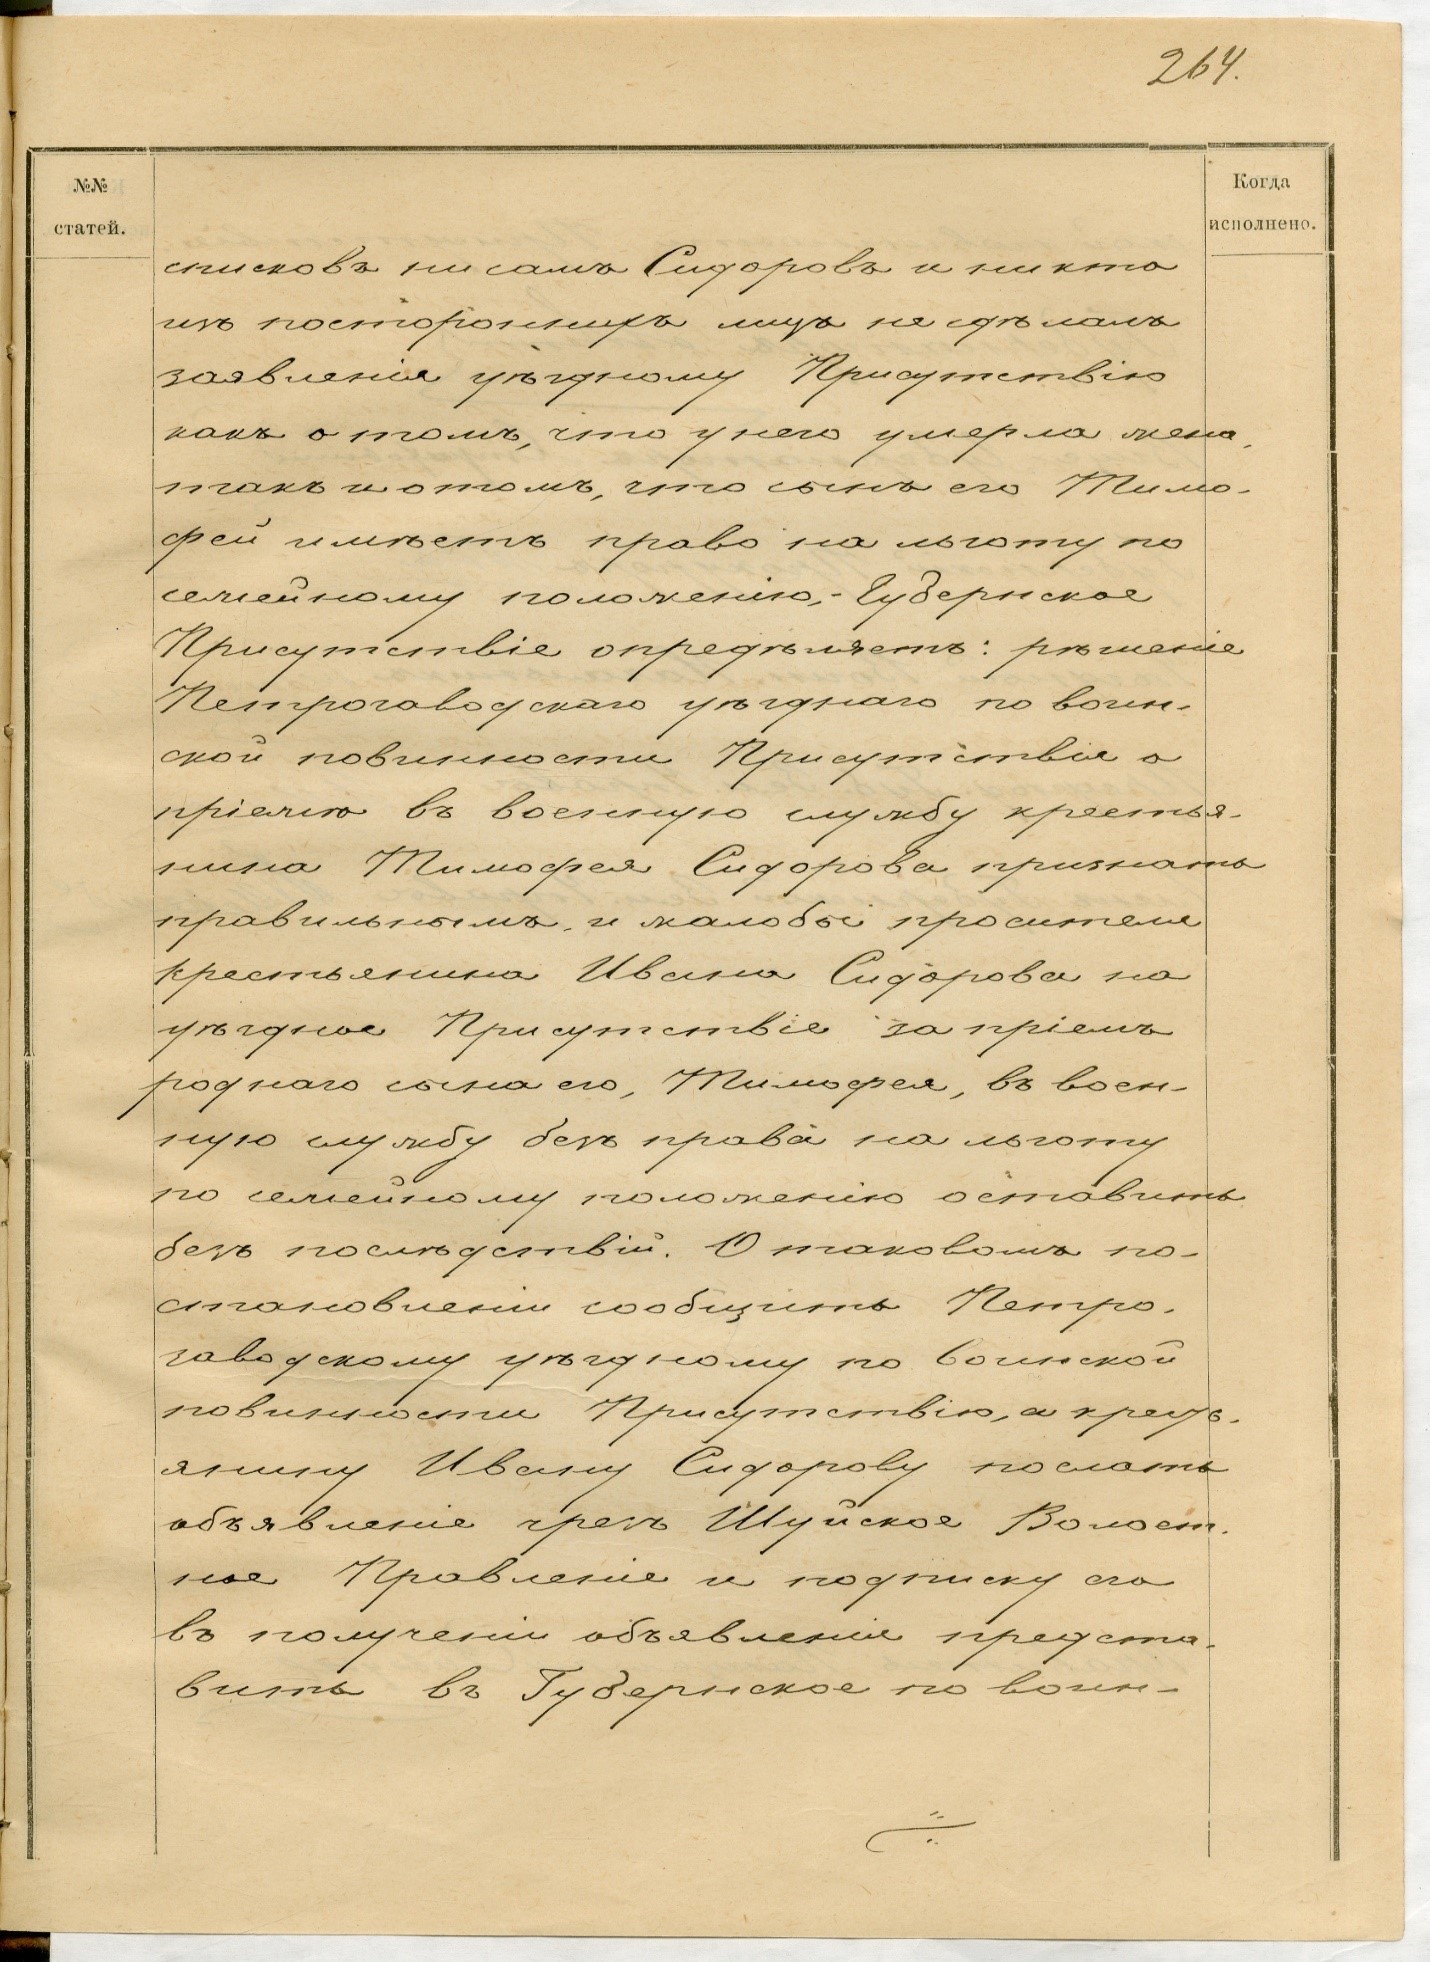 264.
№№
статей.
Когда
исполнено.
списковъ ни самъ Сидоровъ и никто
изъ постороннихъ лицъ не сдѣлалъ
заявленія уѣздному Присутствію
какъ о томъ, что у него умерла жена,
такъ и о томъ, что сынъ его Тимо-
фей имѣетъ право на льготу по
семейному положенію,- Губернское
Присутствіе опредѣляетъ: рѣшеніе
Петрозаводскаго уѣзднаго по воин-
ской повинности Присутствія о
пріемѣ въ военную службу крестья-
нина Тимофея Сидорова признать
правильнымъ, и жалобы просителя
крестьянина Ивана Сидорова на
уѣздное Присутствіе за пріемъ
роднаго сына его, Тимофея, въ воен-
ную службу безъ права на льготу
по семейному положенію оставить
безъ послѣдствій. О таковомъ по-
становленіи сообщить Петро-
заводскому уѣздному по воинской
повинности Присутствію, а кресть-
янину Ивану Сидорову послать
объявленіе чрезъ Шуйское Волост-
ное Правленіе и подписку его
въ полученіи объявленія предста-
вить въ Губернское по воин-